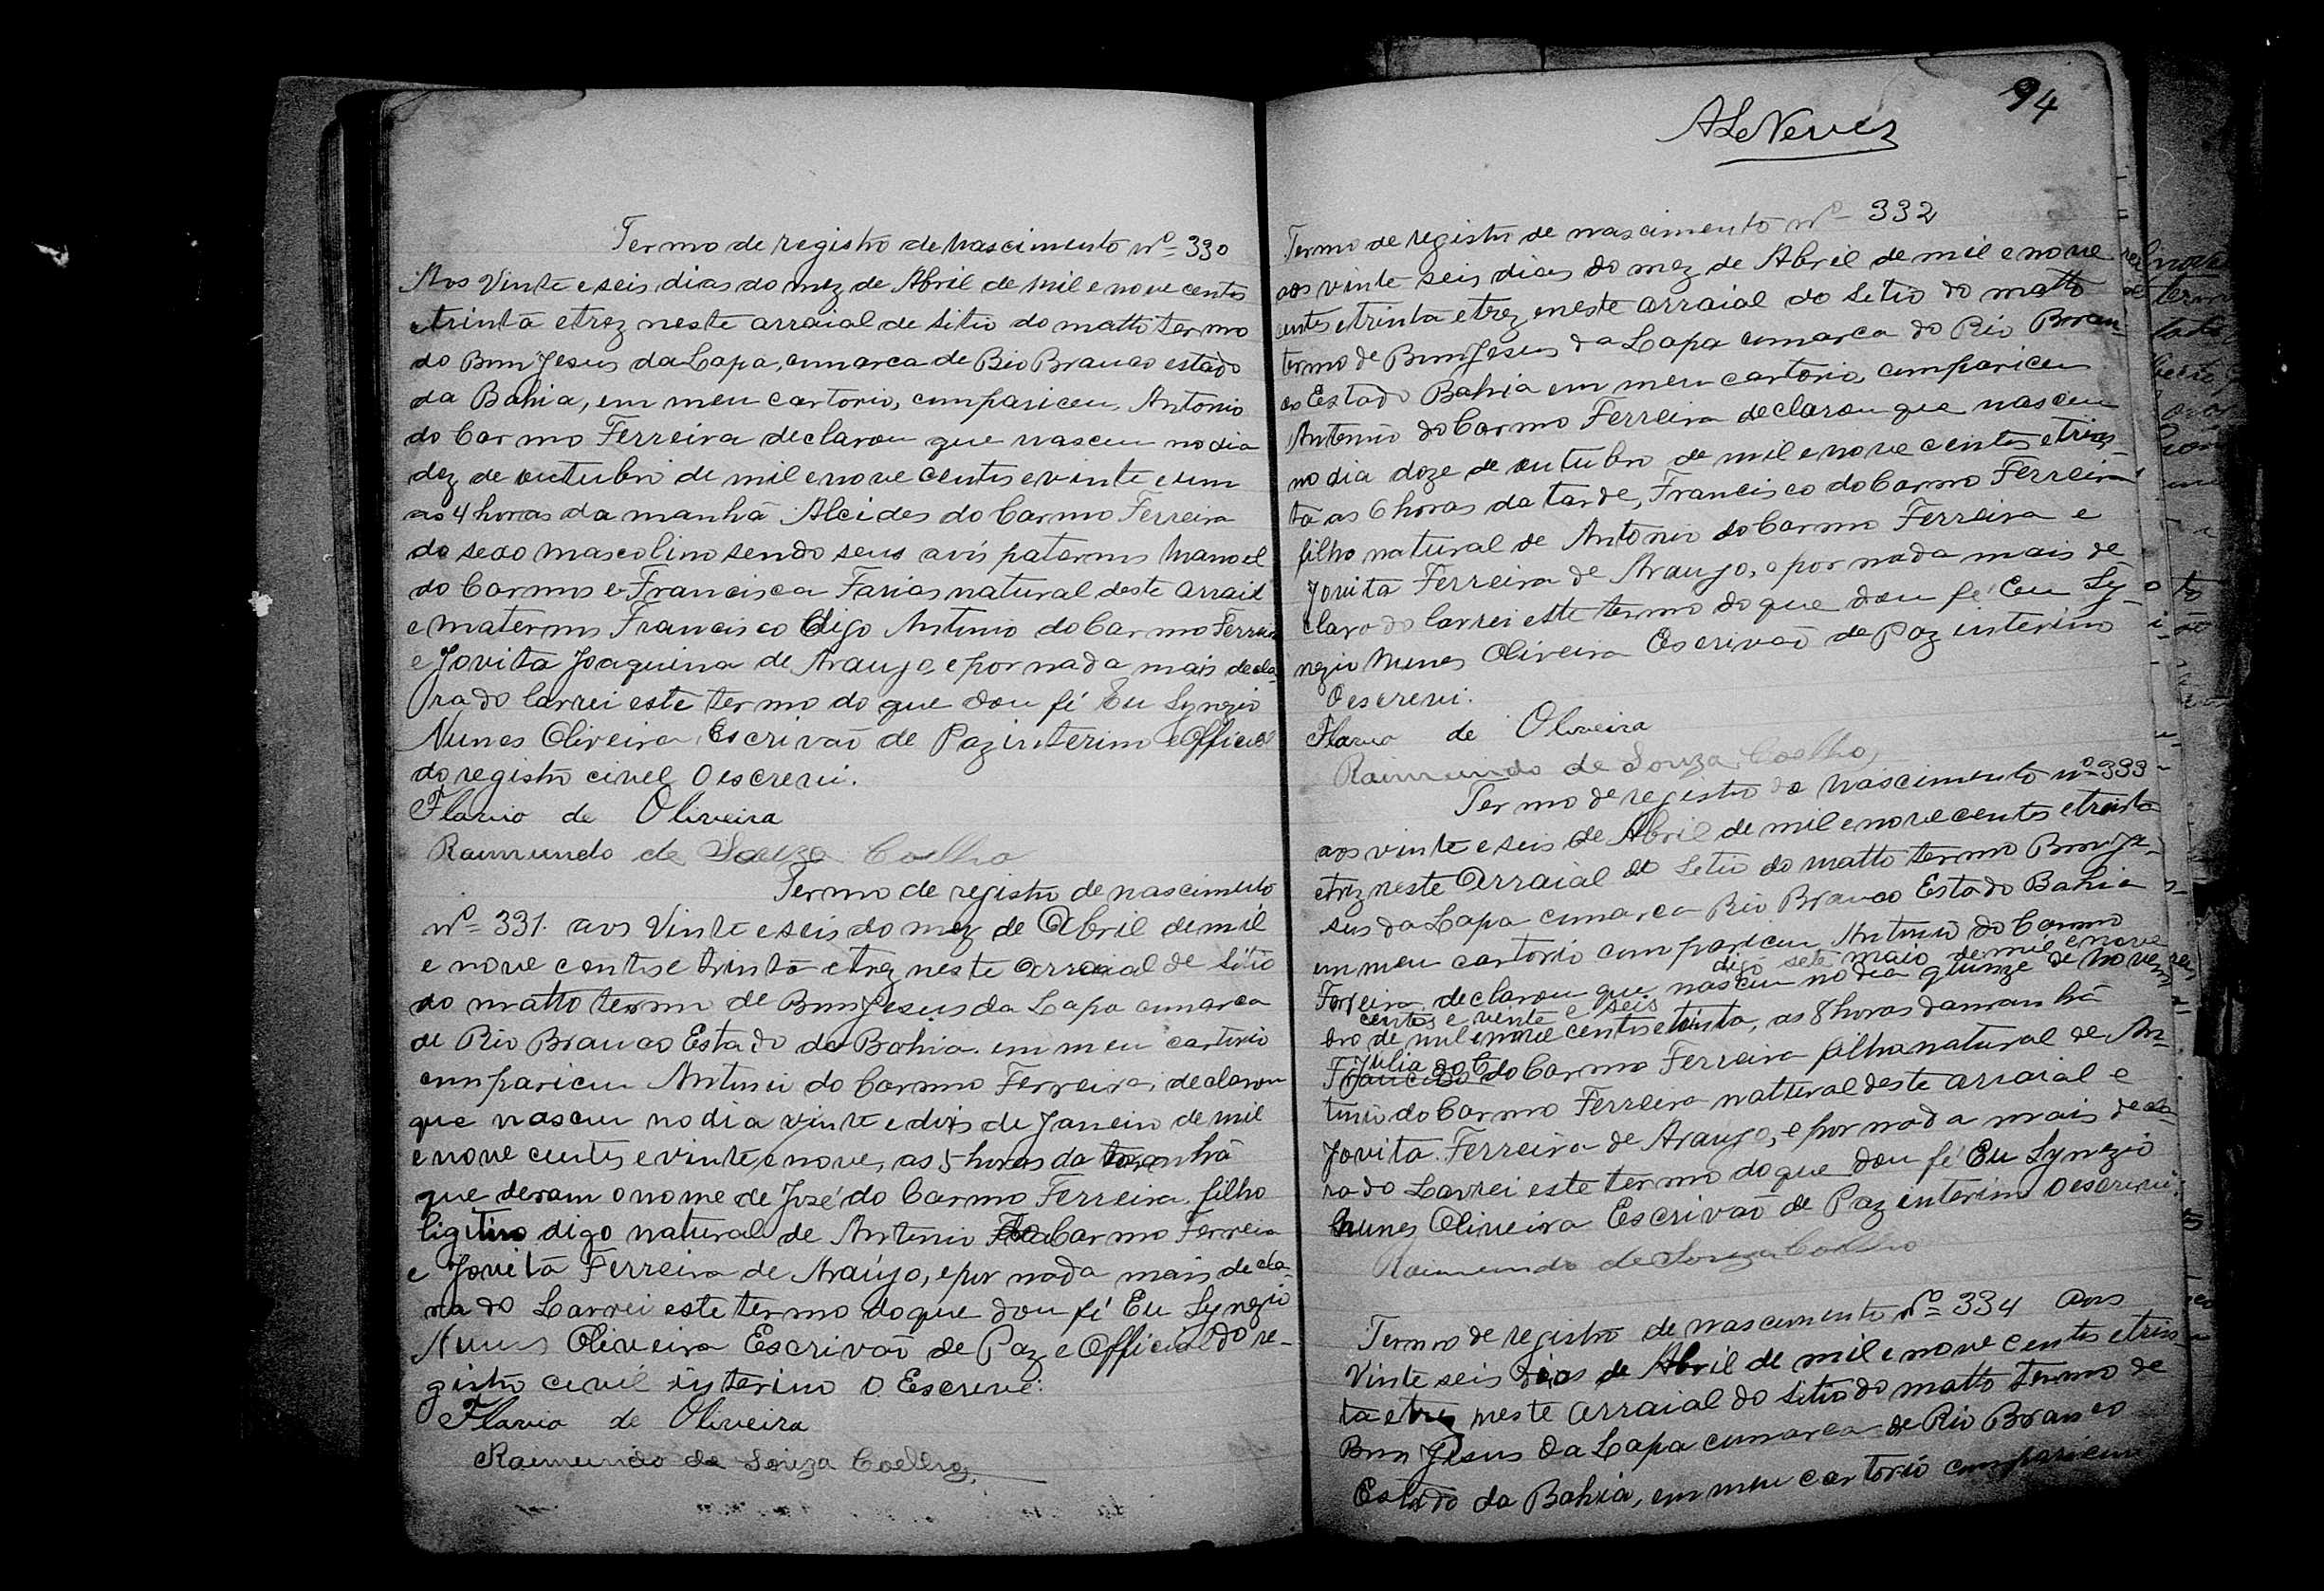 Termo de registro de Nascimento Nº 330
Aos Vinte e seis dias do mez de Abril de mil e nove centos
e trinta e trez neste arraial de sitio do matto termo
do Bom Jesus da Lapa, cumarca de Rio Branco estado
da Bahia, em meu cartorio, cumpariceu, Antonio
do Carmo Ferreira declarou que nasceu no dia
dez de outubro de mil e nove centos e vinte e um
as 4 horas da manhã Alcides do Carmo Ferreira
do sexo mascolino sendo seus avós paternos Manoel
do Carmo e Francisca Farias natural deste arraial
e maternos Francisco Digo Antonio do Carmo Ferreira
e Jovita Joaquina de Araujo, e por nada mais decla-
rado lavrei este termo do que dou fé Eu Synezio
Nunes Oliveira, Escrivão de Paz interino e Official
do registro civel O escrevi.
Flavio de Oliveira
Raimundo de Souza Coelho
Termo de registro de nascimento
Nº 331. aos Vinte e seis do mez de Abril de mil
e nove centos e trinta e trez neste Arraial de Sitio
do matto termo de Bom Jesus da Lapa cumarca
de Rio Branco Estado da Bahia. em meu cartorio
cumpariceu Antonio do Carmo Ferreira, declarou
que nasceu no dia vinte e dois de Janeiro de mil
e nove centos e vinte e nove, as 5 horas da manhã
que deram o nome de José do Carmo Ferreira filho
ligitimo digo natural de Antonio do Carmo Ferreira
e Jovita Ferreira de Araújo, e por nada mais decla-
rado Lavrei este termo do que dou fé Eu Synezio
Nunes Oliveira Escrivão de Paz e Official do re-
gistro civil interino O Escrevi.
Flavio de Oliveira
Raimundo de Souza Coelho
94
A L Neves
Termo de registro de nascimento Nº 332
aos vinte seis dias do mez de Abril de mil e nove
centos e trinta e trez neste arraial do Sitio do matto
termo de Bom Jesus da Lapa cumarca do Rio Bran-
co Estado Bahia em meu cartorio, cumpariceu
Antonio do Carmo Ferreira declarou que nasceu
no dia doze de outubro de mil e nove centos e trin-
ta as 6 horas da tarde, Francisco do Carmo Ferreira
filho natural de Antonio do Carmo Ferreira e
Jovita Ferreira de Araujo, e por nada mais de
clarado lavrei este termo do que dou fé Eu Sy-
nezio Nunes Oliveira Escrivão de Paz interino
O escrevi.
Flavio de Oliveira
Raimundo de Souza Coelho
Termo de registro de Nascimento nº 333
aos vinte e seis de Abril de mil e nove centos e trinta
e trez neste Arraial do Sitio do matto termo Bom Je-
sus da Lapa cumarca Rio Branco Estado Bahia
em meu cartorio cumpariceu Antonio do Carmo
digo sete maio de mil e nove
Ferreira declarou que nasceu no dia quinze de Novem
centos e vinte e seis
bro de mil e nove centos e trinta, as 8 horas da manhã
Julia do C
Francisco do Carmo Ferreira filha natural de An-
tonio do Carmo Ferreira nattural deste arraial e
Jovita Ferreira de Araújo, e por nada mais decla-
rado Lavrei este termo do que dou fé Eu Synezio
Nunes Oliveira Escrivão de Paz interino O escrevi.
Raimundo de Souza Coelho
Termo de registro de nascimento Nº 334 Aos
Vinte seis dias de Abril de mil e nove centos e trin
ta e trez neste arraial do Sitio do matto termo de
Bom Jesus da Lapa cumarca de Rio Branco
Estado da Bahia, em meu cartorio cumpariceu